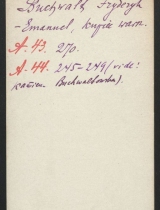 Buchwalt Fryderyk
- Emanuel, kupiec warsz.
A. 43. 270.
A. 44. 245-249 (vide:
Buchwaldowska).